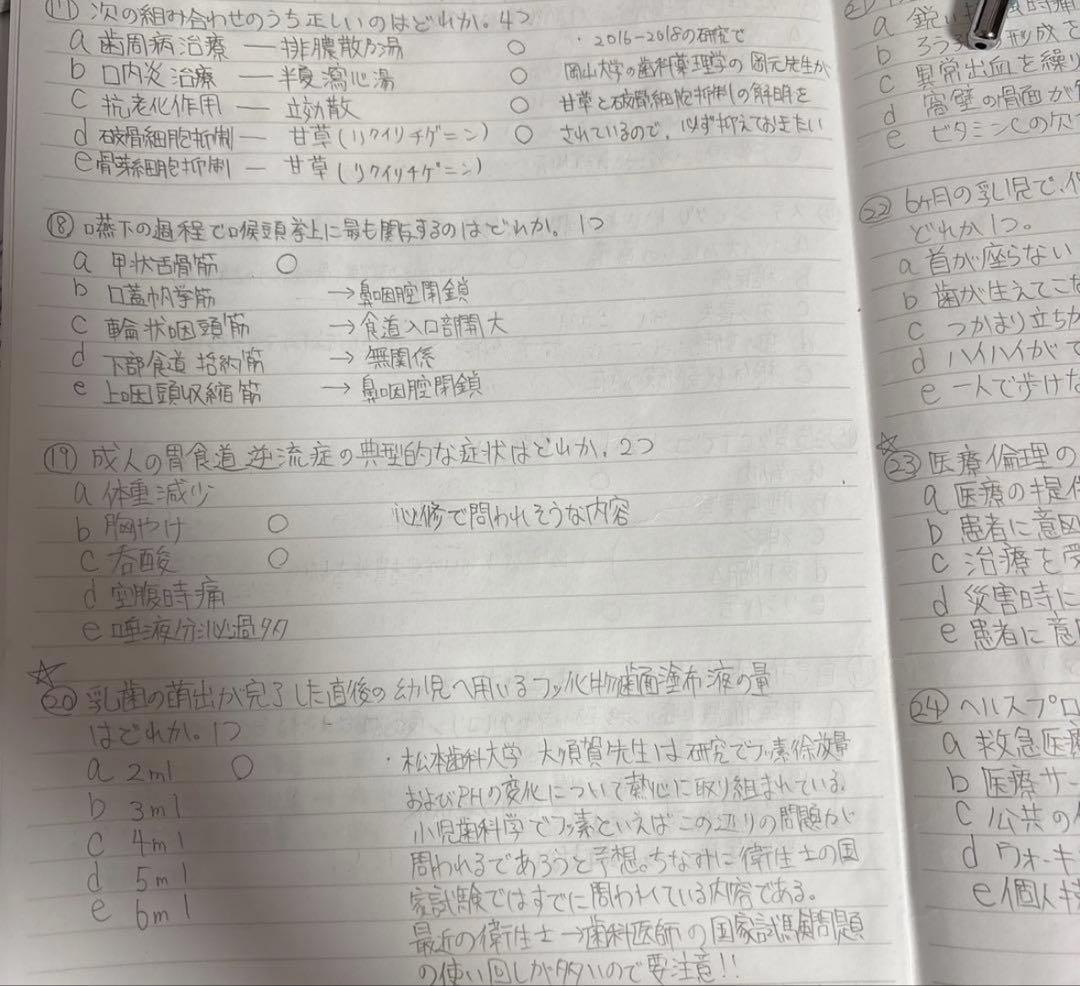 ⑰ 次の組み合わせのうち正しいのはどれか。4つ
a 歯周病治療 ― 排膿散及湯 ○
b 口内炎治療 ― 半夏瀉心湯 ○
c 抗老化作用 ― 立効散 ○
d 破骨細胞抑制 ― 甘草(リクイリチゲニン) ○
e 骨芽細胞抑制 ― 甘草(リクイリチゲニン)
・2016-2018の研究で
岡山大学の歯科薬理学の岡元先生が
甘草と破骨細胞抑制の解明を
されているので、必ず抑えておきたい
⑱ 嚥下の過程で喉頭挙上に最も関与するのはどれか。1つ
a 甲状舌骨筋 ○
b 口蓋帆挙筋 →鼻咽腔閉鎖
c 輪状咽頭筋 →食道入口部開大
d 下部食道括約筋 → 無関係
e 上咽頭収縮筋 → 鼻咽腔閉鎖
⑲ 成人の胃食道逆流症の典型的な症状はどれか。2つ
a 体重減少
b 胸やけ ○
c 呑酸 ○
d 空腹時痛
e 唾液分泌過多
必修で問われそうな内容
☆
⑳ 乳歯の萌出が完了した直後の幼児へ用いるフッ化物歯面塗布液の量
はどれか。1つ
a 2ml ○
b 3ml
c 4ml
d 5ml
e 6ml
・松本歯科大学 大須賀先生は研究でフッ素徐放量
およびPHの変化について熱心に取り組まれている。
小児歯科学でフッ素といえばこの辺りの問題が
問われるであろうと予想。ちなみに衛生士の国
家試験ではすでに問われている内容である。
最近の衛生士→歯科医師の国家試験問題
の使い回しが多いので要注意!!
a 鋭い
b
c 異常出血を繰り
d 窩壁の骨面が
e ビタミンCの欠
㉒ 6ヶ月の乳児で、
どれか1つ。
a 首が座らない
b 歯が生えてこな
c つかまり立ちが
d ハイハイがで
e 一人で歩けな
☆
㉓ 医療倫理の
a 医療の提供
b 患者に意図
c 治療を受
d 災害時に
e 患者に意
㉔ ヘルスプロ
a 救急医療
b 医療サー
c 公共の
d ウォーキ
e 個人